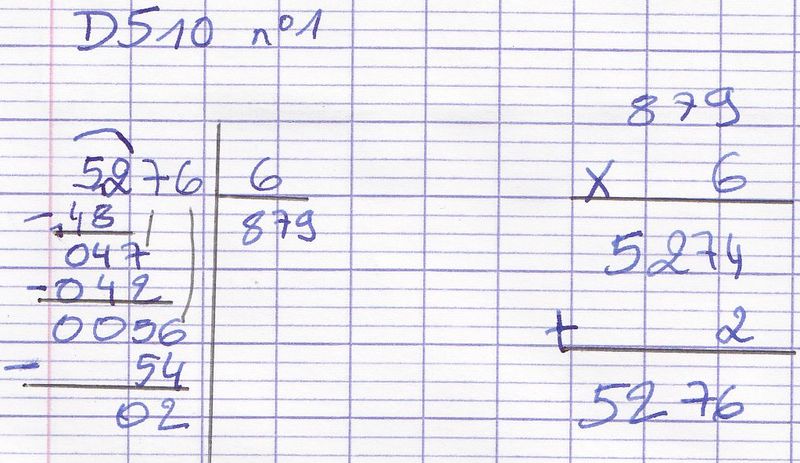 D510 n°1
5276 6
- 48 879
047
- 042
0056
- 54
02
879
x 6
5274
+ 2
5276